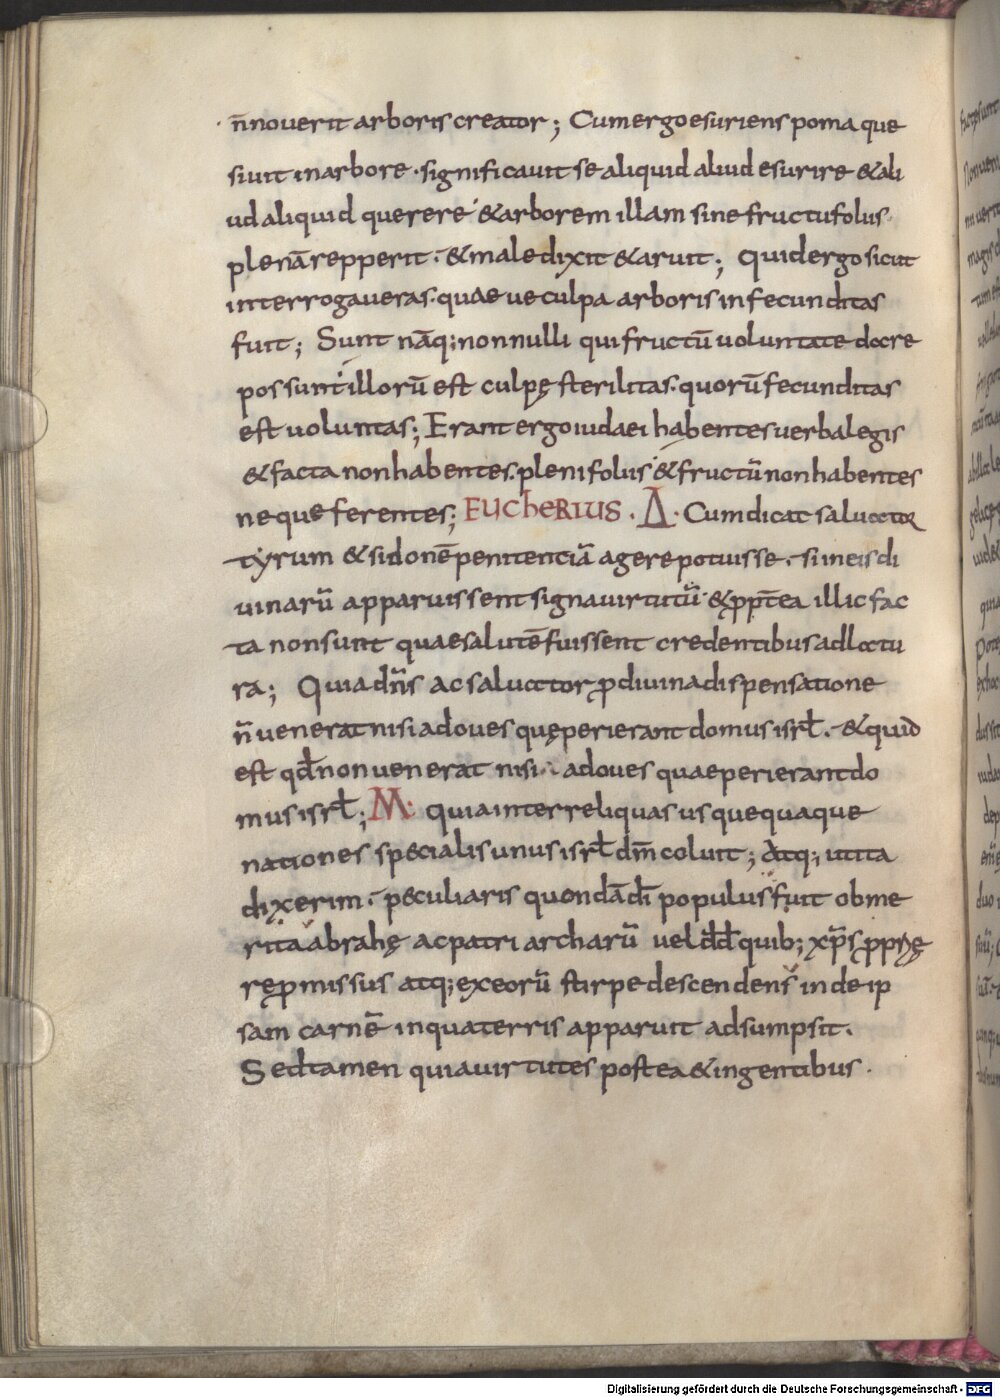 n̄nouerit arboris creator; Cum ergo esuriens poma que
siuit in arbore · significauit se aliquid aliud esurire & ali
ud aliquid querere & arborem illam sine fructu folus
plenā repperit · & maledixit & aruit; Quid ergo sicut
interrogaueras · quae ue culpa arboris infecunditas
fuit; Sunt nāq; nonnulli qui fructū uoluntate docre
possunt · illorū est culpę sterilitas · quorū fecunditas
est uoluntas; Erant ergo iudaei habentes uerba legis
& facta non habentes · pleni foliis & fructū non habentes
neque ferentes; EUCHERIUS · Δ · Cum dicat saluator
tyrum & sidonē penitenciā agere potuisse · si in eis di
uinarū apparuissent signa uirtutū · & ꝓpt̄ea illic fac
ta non sunt quae salutē fuissent credentibus adlatu
ra; Quia dn̄s ac saluator ꝓ diuina dispensatione
n̄ uenerat nisi ad oues quę perierant domus isrl̄ · & quid
est qd̄ non uenerat nisi ad oues quae perierant do
mus isrl̄; M · quia inter reliquas usquequaque
nationes specialis unus isrl̄ dm̄ coluit; Atq; ut ita
dixerim · peculiaris quondā dī populus fuit ob me
rita abrahę ac patriarcharū uel dd̄ quib; xp̄s ꝓprię
reꝓmissus atq; ex eorū stirpe descendens inde ip
sam carnē in qua terris apparuit adsumpsit ·
Sed tamen quia uirtutes postea & in gentibus ·
Digitalisierung gefördert durch die Deutsche Forschungsgemeinschaft - DFG